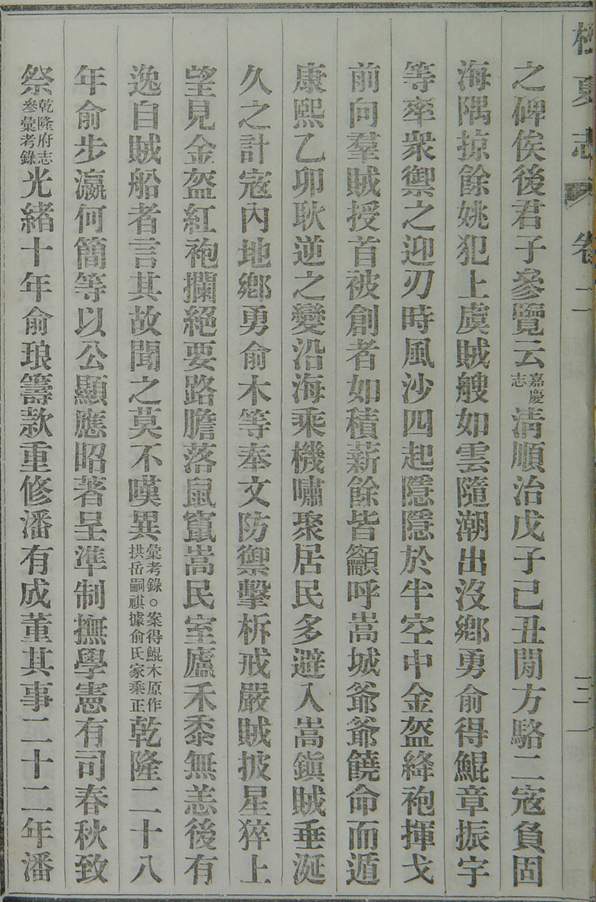 志
卷二
三
之碑俟後君子參覽云嘉慶志清順治戊子己丑間方駱二寇負固
海隅掠餘姚犯上虞賊艘如雲隨潮出沒鄉勇俞得鯤章振宇
等率衆禦之迎刃時風沙四起隱隱於半空中金盔絳袍揮戈
前向羣賊授首被創者如積薪餘皆籲呼嵩城爺爺饒命而遁
康熙乙卯耿逆之變沿海乘機嘯聚居民多避入嵩鎭賊垂涎
久之計寇內地鄉勇俞木等奉文防禦擊柝戒嚴賊披星猝上
望見金盔紅袍攔絕要路膽落鼠竄嵩民室廬禾黍無恙後有
逸自賊船者言其故聞之莫不嘆異彙考錄○案得鯤木原作拱岳嗣祺據俞氏家乘正乾隆二十八
年俞步瀛何簡等以公顯應昭著呈準制撫學憲有司春秋致
祭乾隆府志參彙考錄光緒十年俞琅籌款重修潘有成董其事二十二年潘